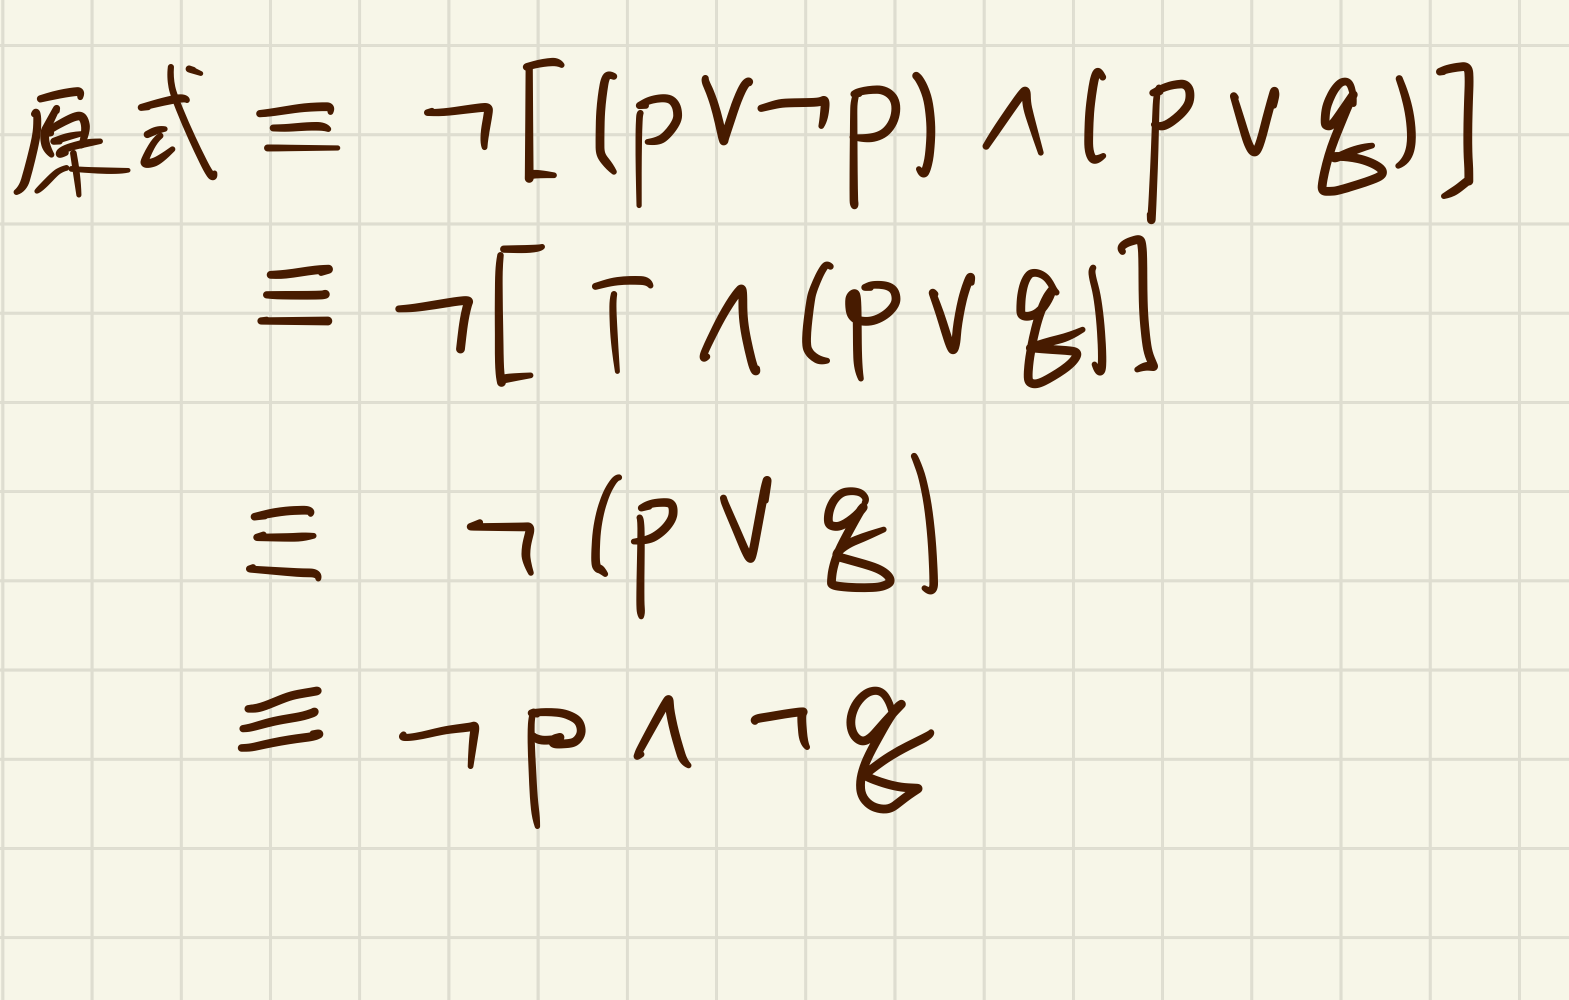 原式 ≡ ¬[(p∨¬p)∧(p∨q)]
≡ ¬[T∧(p∨q)]
≡ ¬(p∨q)
≡ ¬p∧¬q